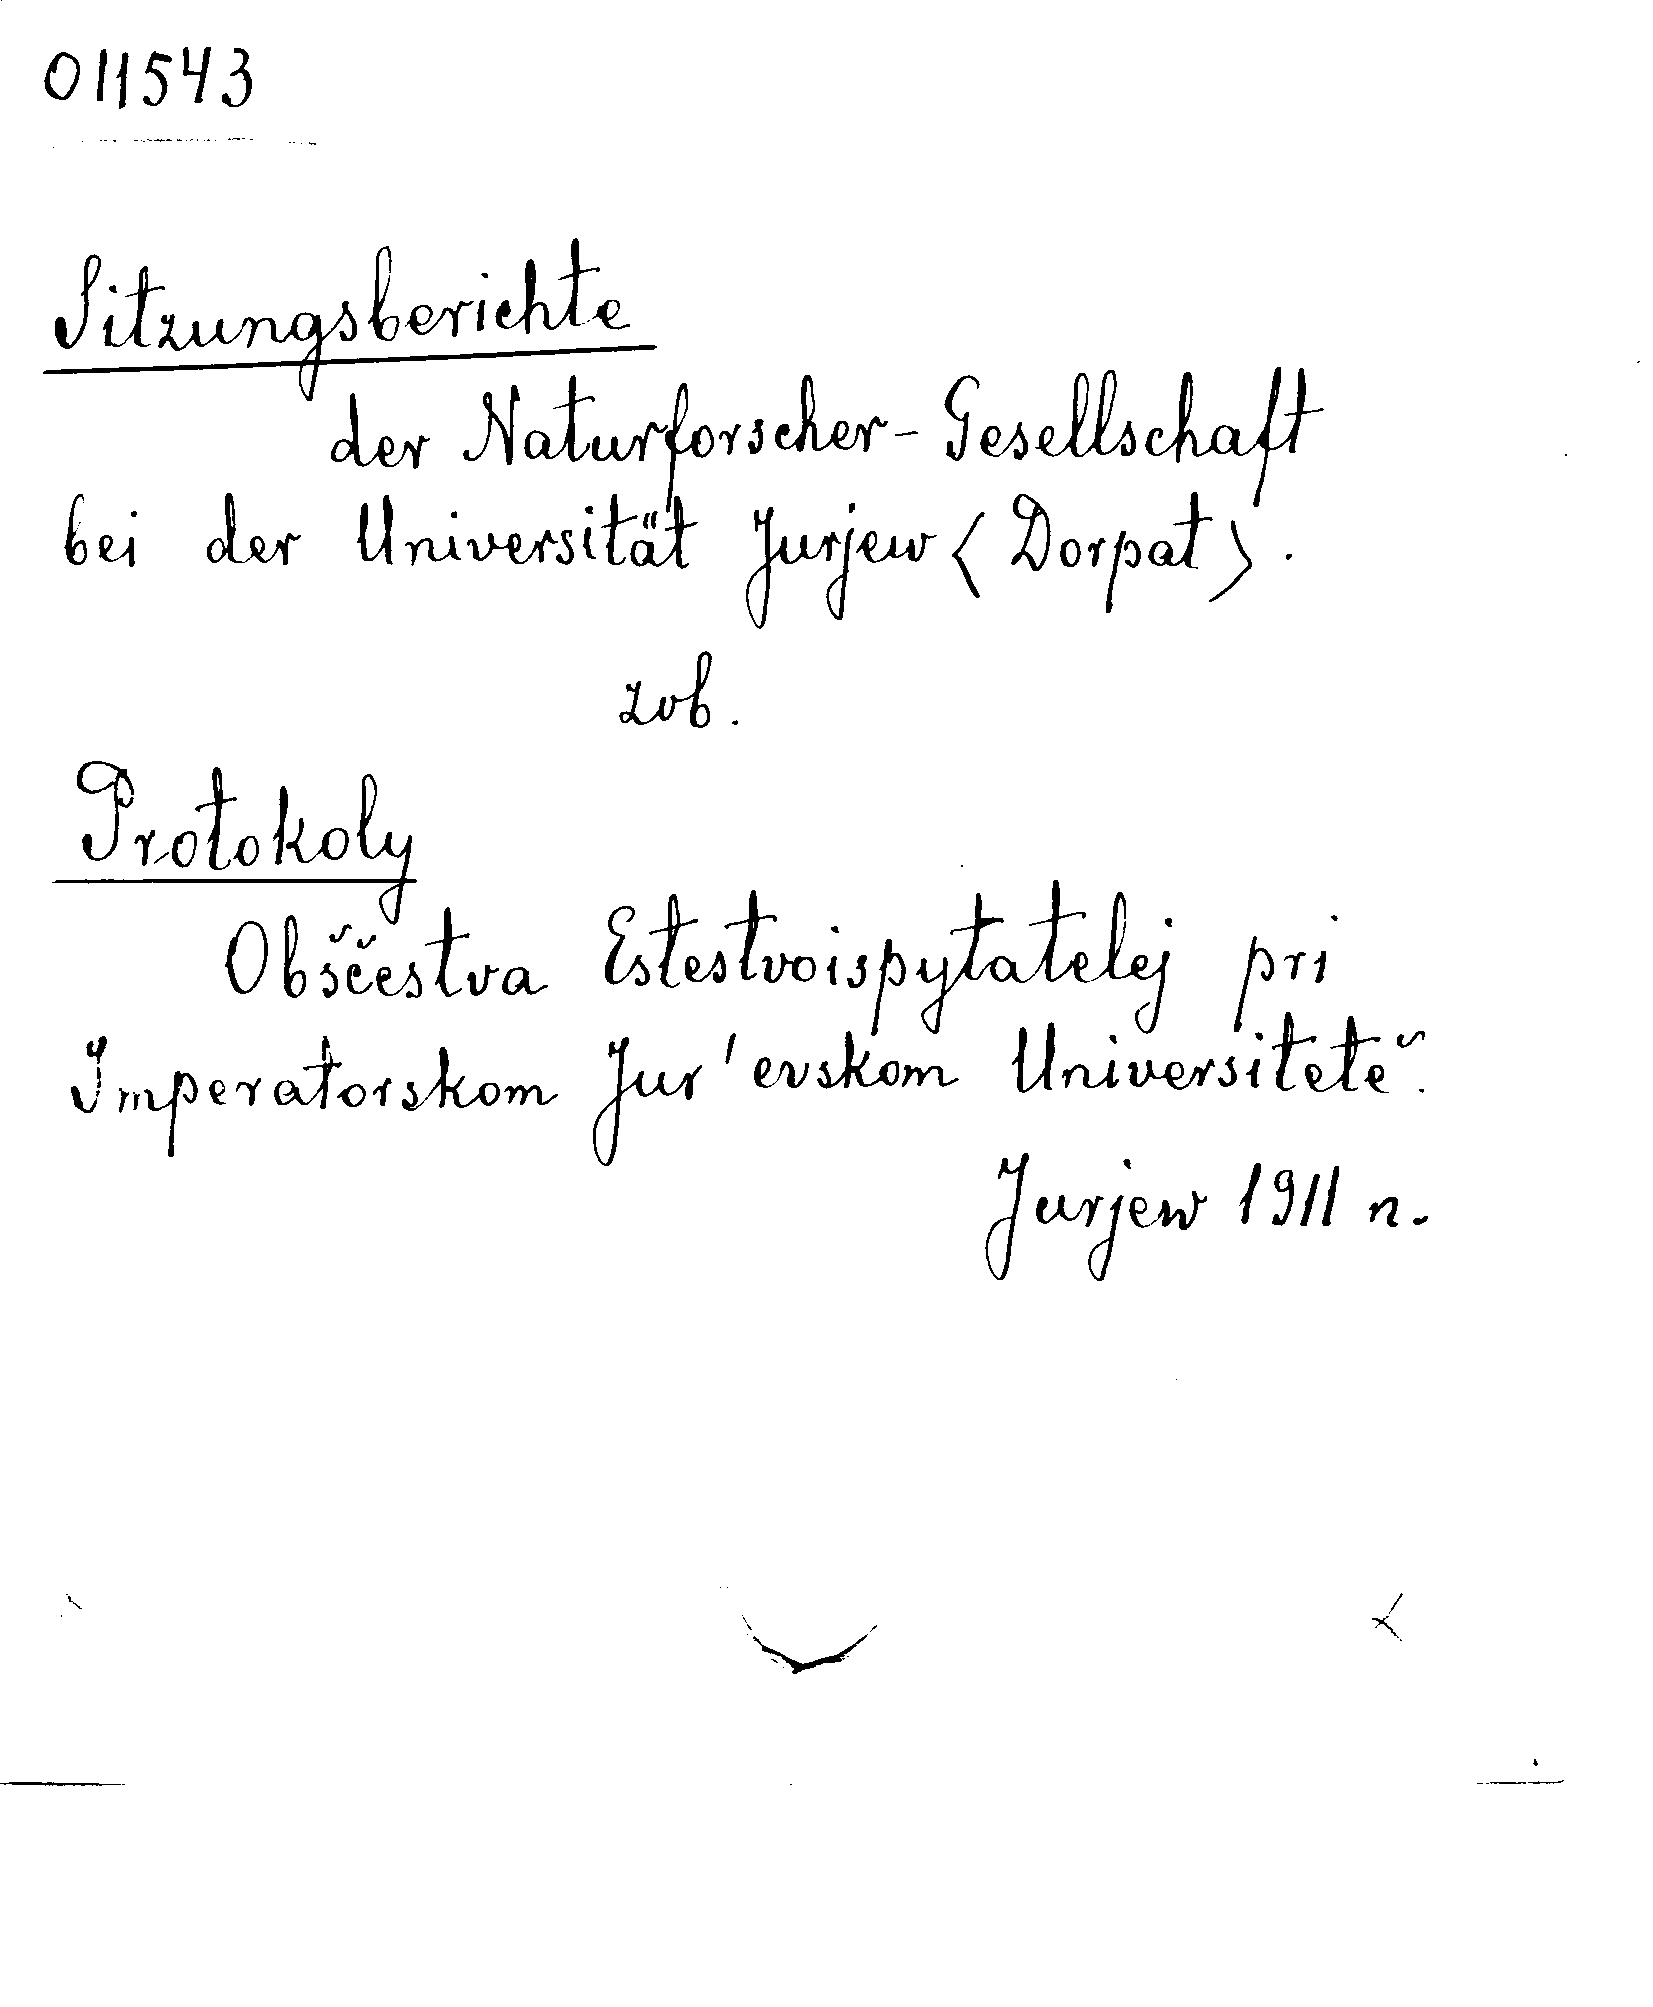 011543
Sitzungsberichte
der Naturforscher-Gesellschaft
bei der Universität Jurjew <Dorpat>.
zob.
Protokoly
Obščestva Estestvoispytatelej pri
Imperatorskom Jur'evskom Universitetě.
Jurjew 1911 n.